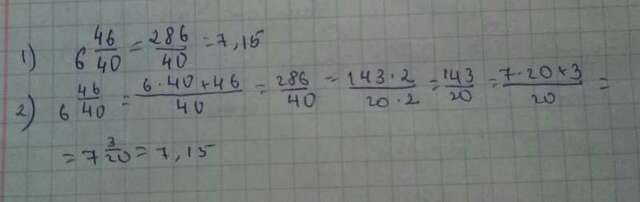 1) 6 46/40 = 286/40 = 7,15
2) 6 46/40 = 6·40+46/40 = 286/40 = 143·2/20·2 = 143/20 = 7·20+3/20 =
= 7 3/20 = 7,15